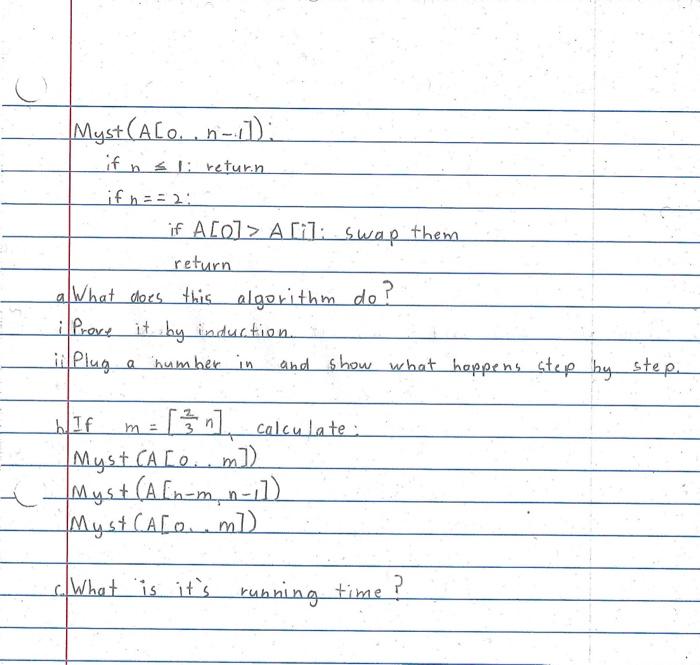 Myst(A[0..n-1]):
if n ≤ 1: return
if n == 2:
if A[0] > A[i]: swap them
return
a. What does this algorithm do?
i Prove it by induction.
ii Plug a number in and show what happens step by step.
b. If m = [2/3 n], calculate:
Myst(A[0..m])
Myst(A[n-m, n-1])
Myst(A[0..m])
c. What is it's running time?